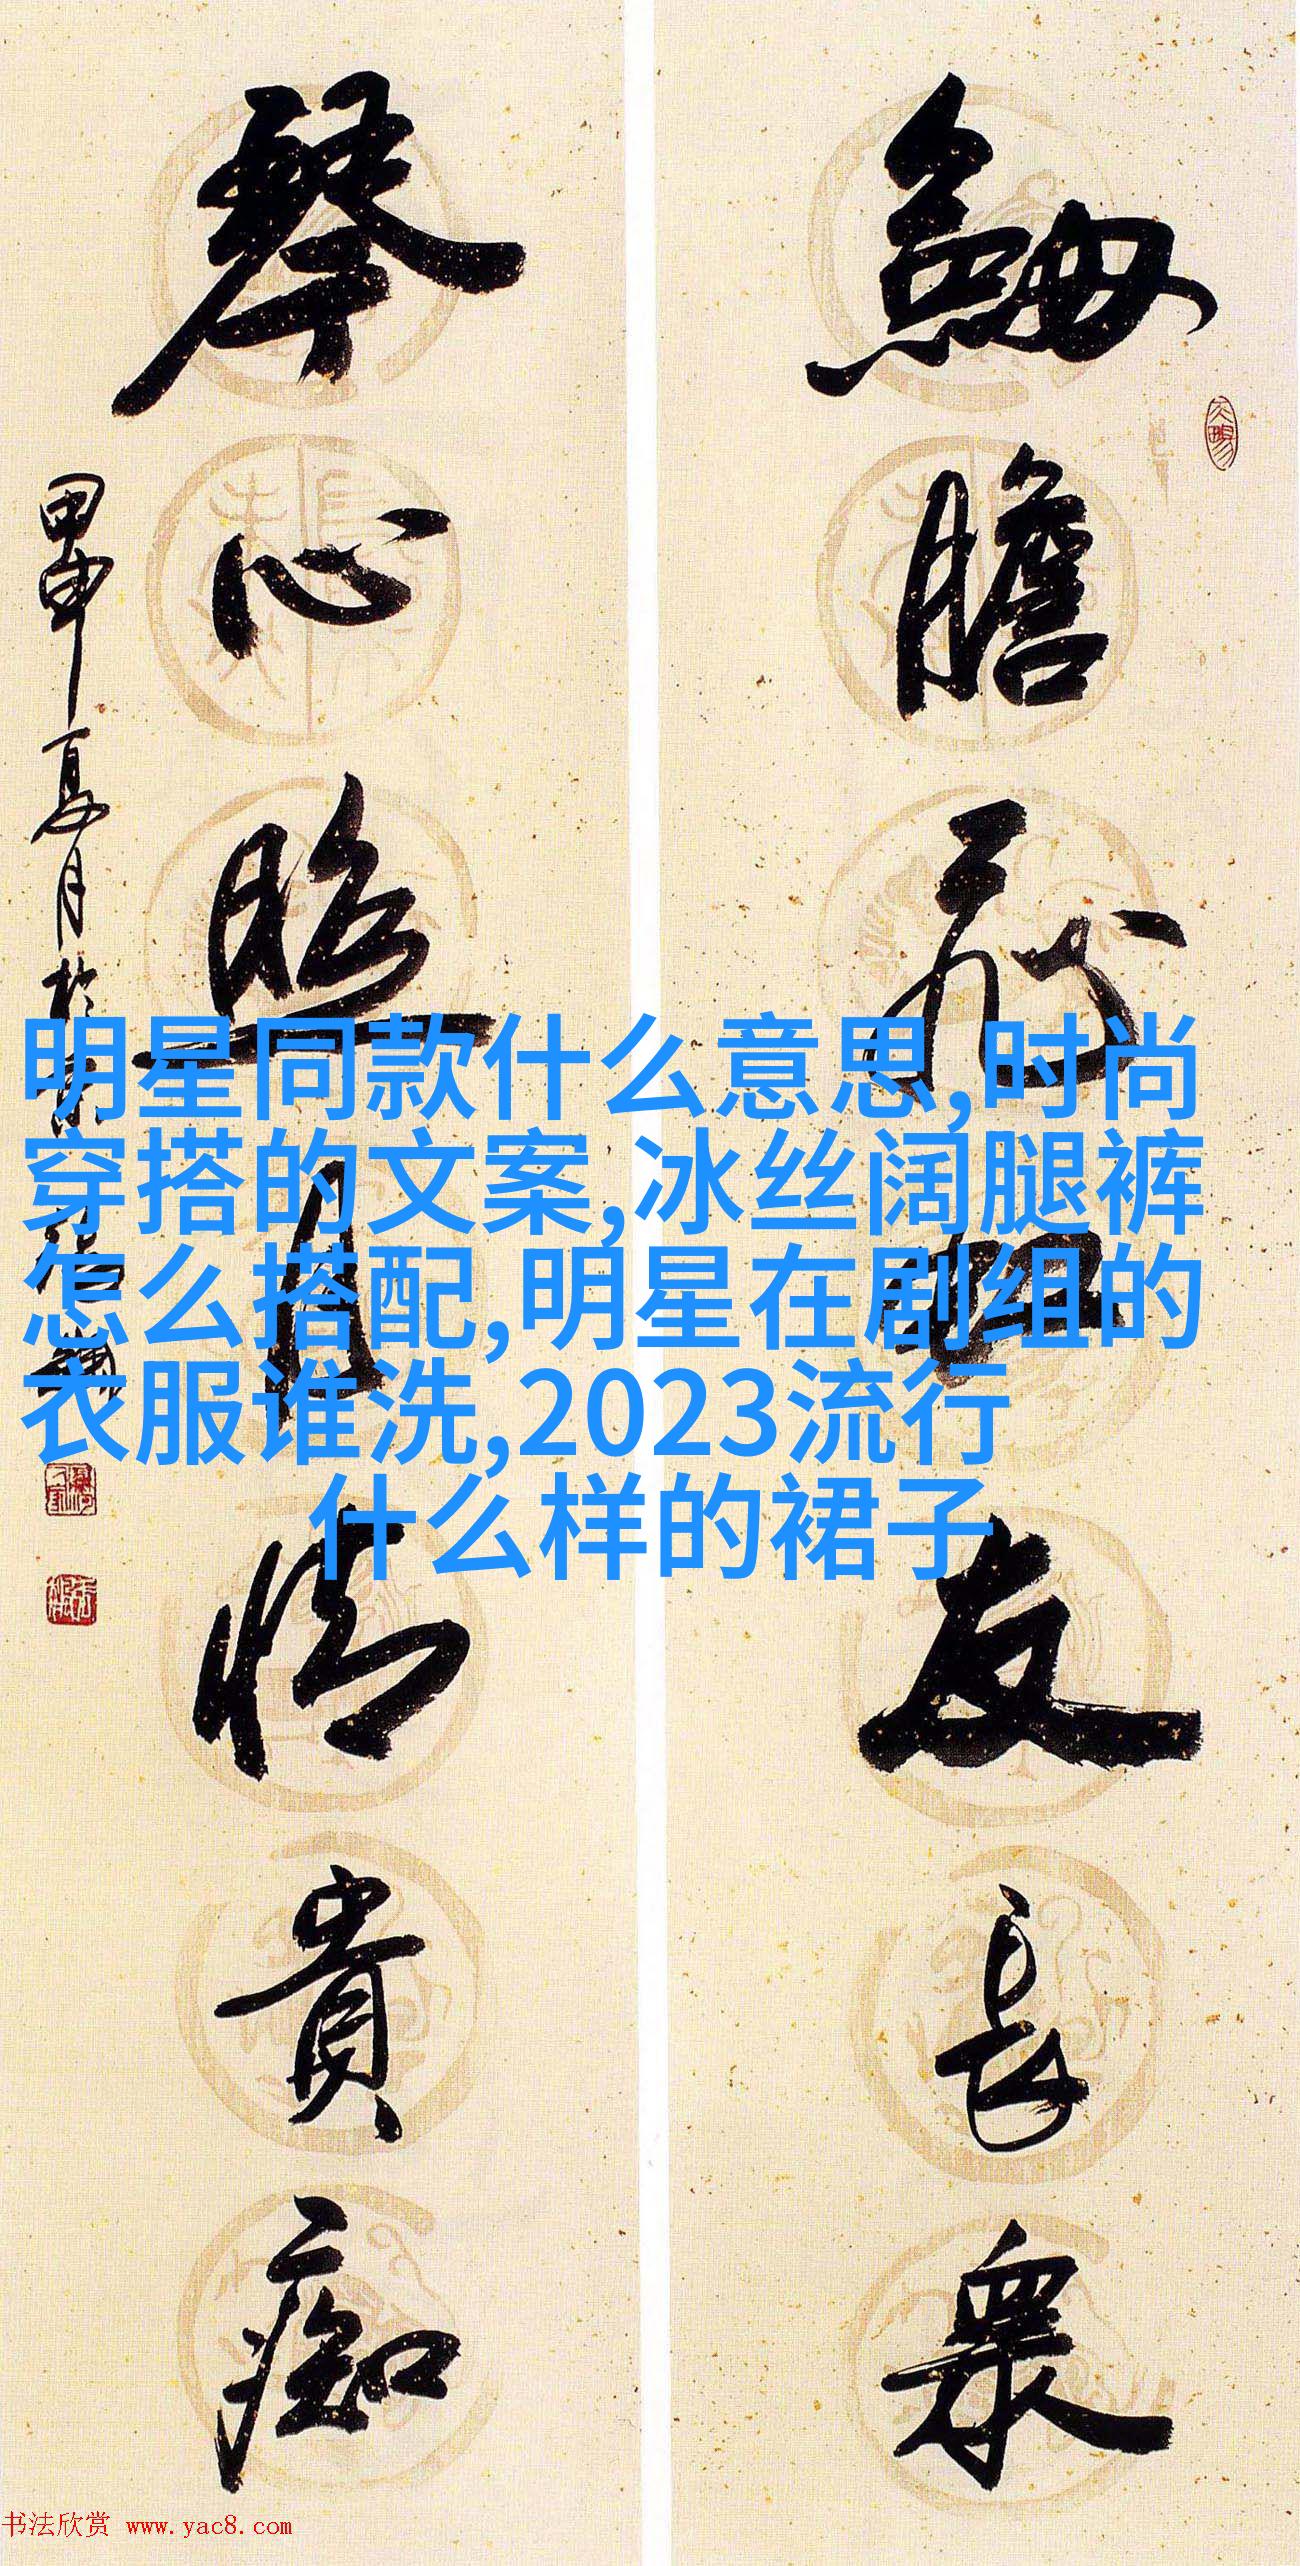 劍膽友長眾
琴心照月情貴痴
甲申夏月於
明星同款什么意思,时尚
穿搭的文案,冰丝阔腿裤
怎么搭配,明星在剧组的
衣服谁洗,2023流行
什么样的裙子
书法欣赏 www.yac8.com